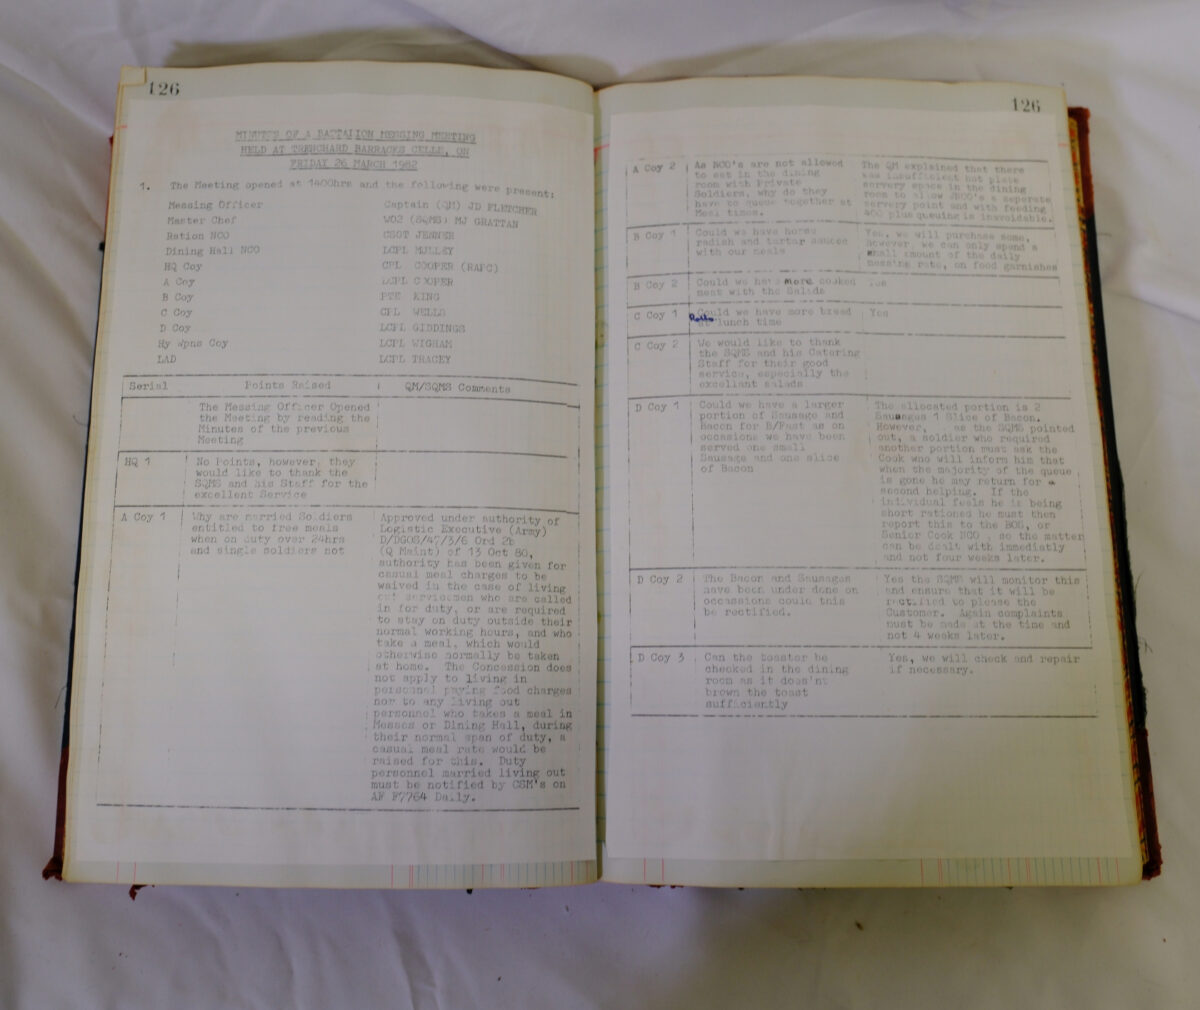 126
MINUTES OF A BATTALION MESSING MEETING
HELD AT TRENCHARD BARRACKS CELLE, ON
FRIDAY 26 MARCH 1982
1. The Meeting opened at 1400hrs and the following were present:
Messing Officer Captain (QM) JD FLETCHER
Master Chef WO2 (SQMS) MJ GRATTAN
Ration NCO CSGT JENNER
Dining Hall NCO LCPL MULLEY
HQ Coy CPL COOPER (RAPC)
A Coy LCPL COOPER
B Coy PTE KING
C Coy CPL WELLS
D Coy LCPL GIDDINGS
Hy Wpns Coy LCPL WIGHAM
LAD LCPL TRACEY
Serial Points Raised QM/SQMS Comments
The Messing Officer Opened
the Meeting by reading the
Minutes of the previous
Meeting
HQ 1 No Points, however, they
would like to thank the
SQMS and his Staff for the
excellent Service
A Coy 1 Why are married Soldiers
entitled to free meals
when on duty over 24hrs
and single soldiers not
Approved under authority of
Logistic Executive (Army)
D/DGOS/47/3/6 Ord 2b
(Q Maint) of 13 Oct 80,
authority has been given for
casual meal charges to be
waived in the case of living
out servicemen who are called
in for duty, or are required
to stay on duty outside their
normal working hours, and who
take a meal, which would
otherwise normally be taken
at home. The Concession does
not apply to living in
personnel paying food charges
nor to any living out
personnel who takes a meal in
Messes or Dining Hall, during
their normal span of duty, a
casual meal rate would be
raised for this. Duty
personnel married living out
must be notified by CSM's on
AF F7764 Daily.
126
A Coy 2 As NCO's are not allowed
to eat in the dining
room with Private
Soldiers, why do they
have to queue together at
Meal times.
The QM explained that there
was insufficient hot plate
servery space in the dining
room to allow JNCO's a seperate
servery point and with feeding
400 plus queuing is inavoidable.
B Coy 1 Could we have horse
radish and tartar sauces
with our meals
Yes, we will purchase some,
however, we can only spend a
small amount of the daily
messing rate, on food garnishes
B Coy 2 Could we have more cooked
meat with the Salads
Yes
C Coy 1 Could we have more bread
Rolls at lunch time
Yes
C Coy 2 We would like to thank
the SQMS and his Catering
Staff for their good
service, especially the
excellent salads
D Coy 1 Could we have a larger
portion of Sausage and
Bacon for B/Fast as on
occasions we have been
served one small
Sausage and one slice
of Bacon
The allocated portion is 2
Sausages 1 Slice of Bacon.
However, as the SQMS pointed
out, a soldier who required
another portion must ask the
Cook who will inform him that
when the majority of the queue
is gone he may return for a
second helping. If the
individual feels he is being
short rationed he must then
report this to the BOS, or
Senior Cook NCO, so the matter
can be dealt with immediatly
and not four weeks later.
D Coy 2 The Bacon and Sausages
have been under done on
occassions could this
be rectified.
Yes the SQMS will monitor this
and ensure that it will be
rectified to please the
Customer. Again complaints
must be made at the time and
not 4 weeks later.
D Coy 3 Can the toaster be
checked in the dining
room as it does'nt
brown the toast
sufficiently
Yes, we will check and repair
if necessary.